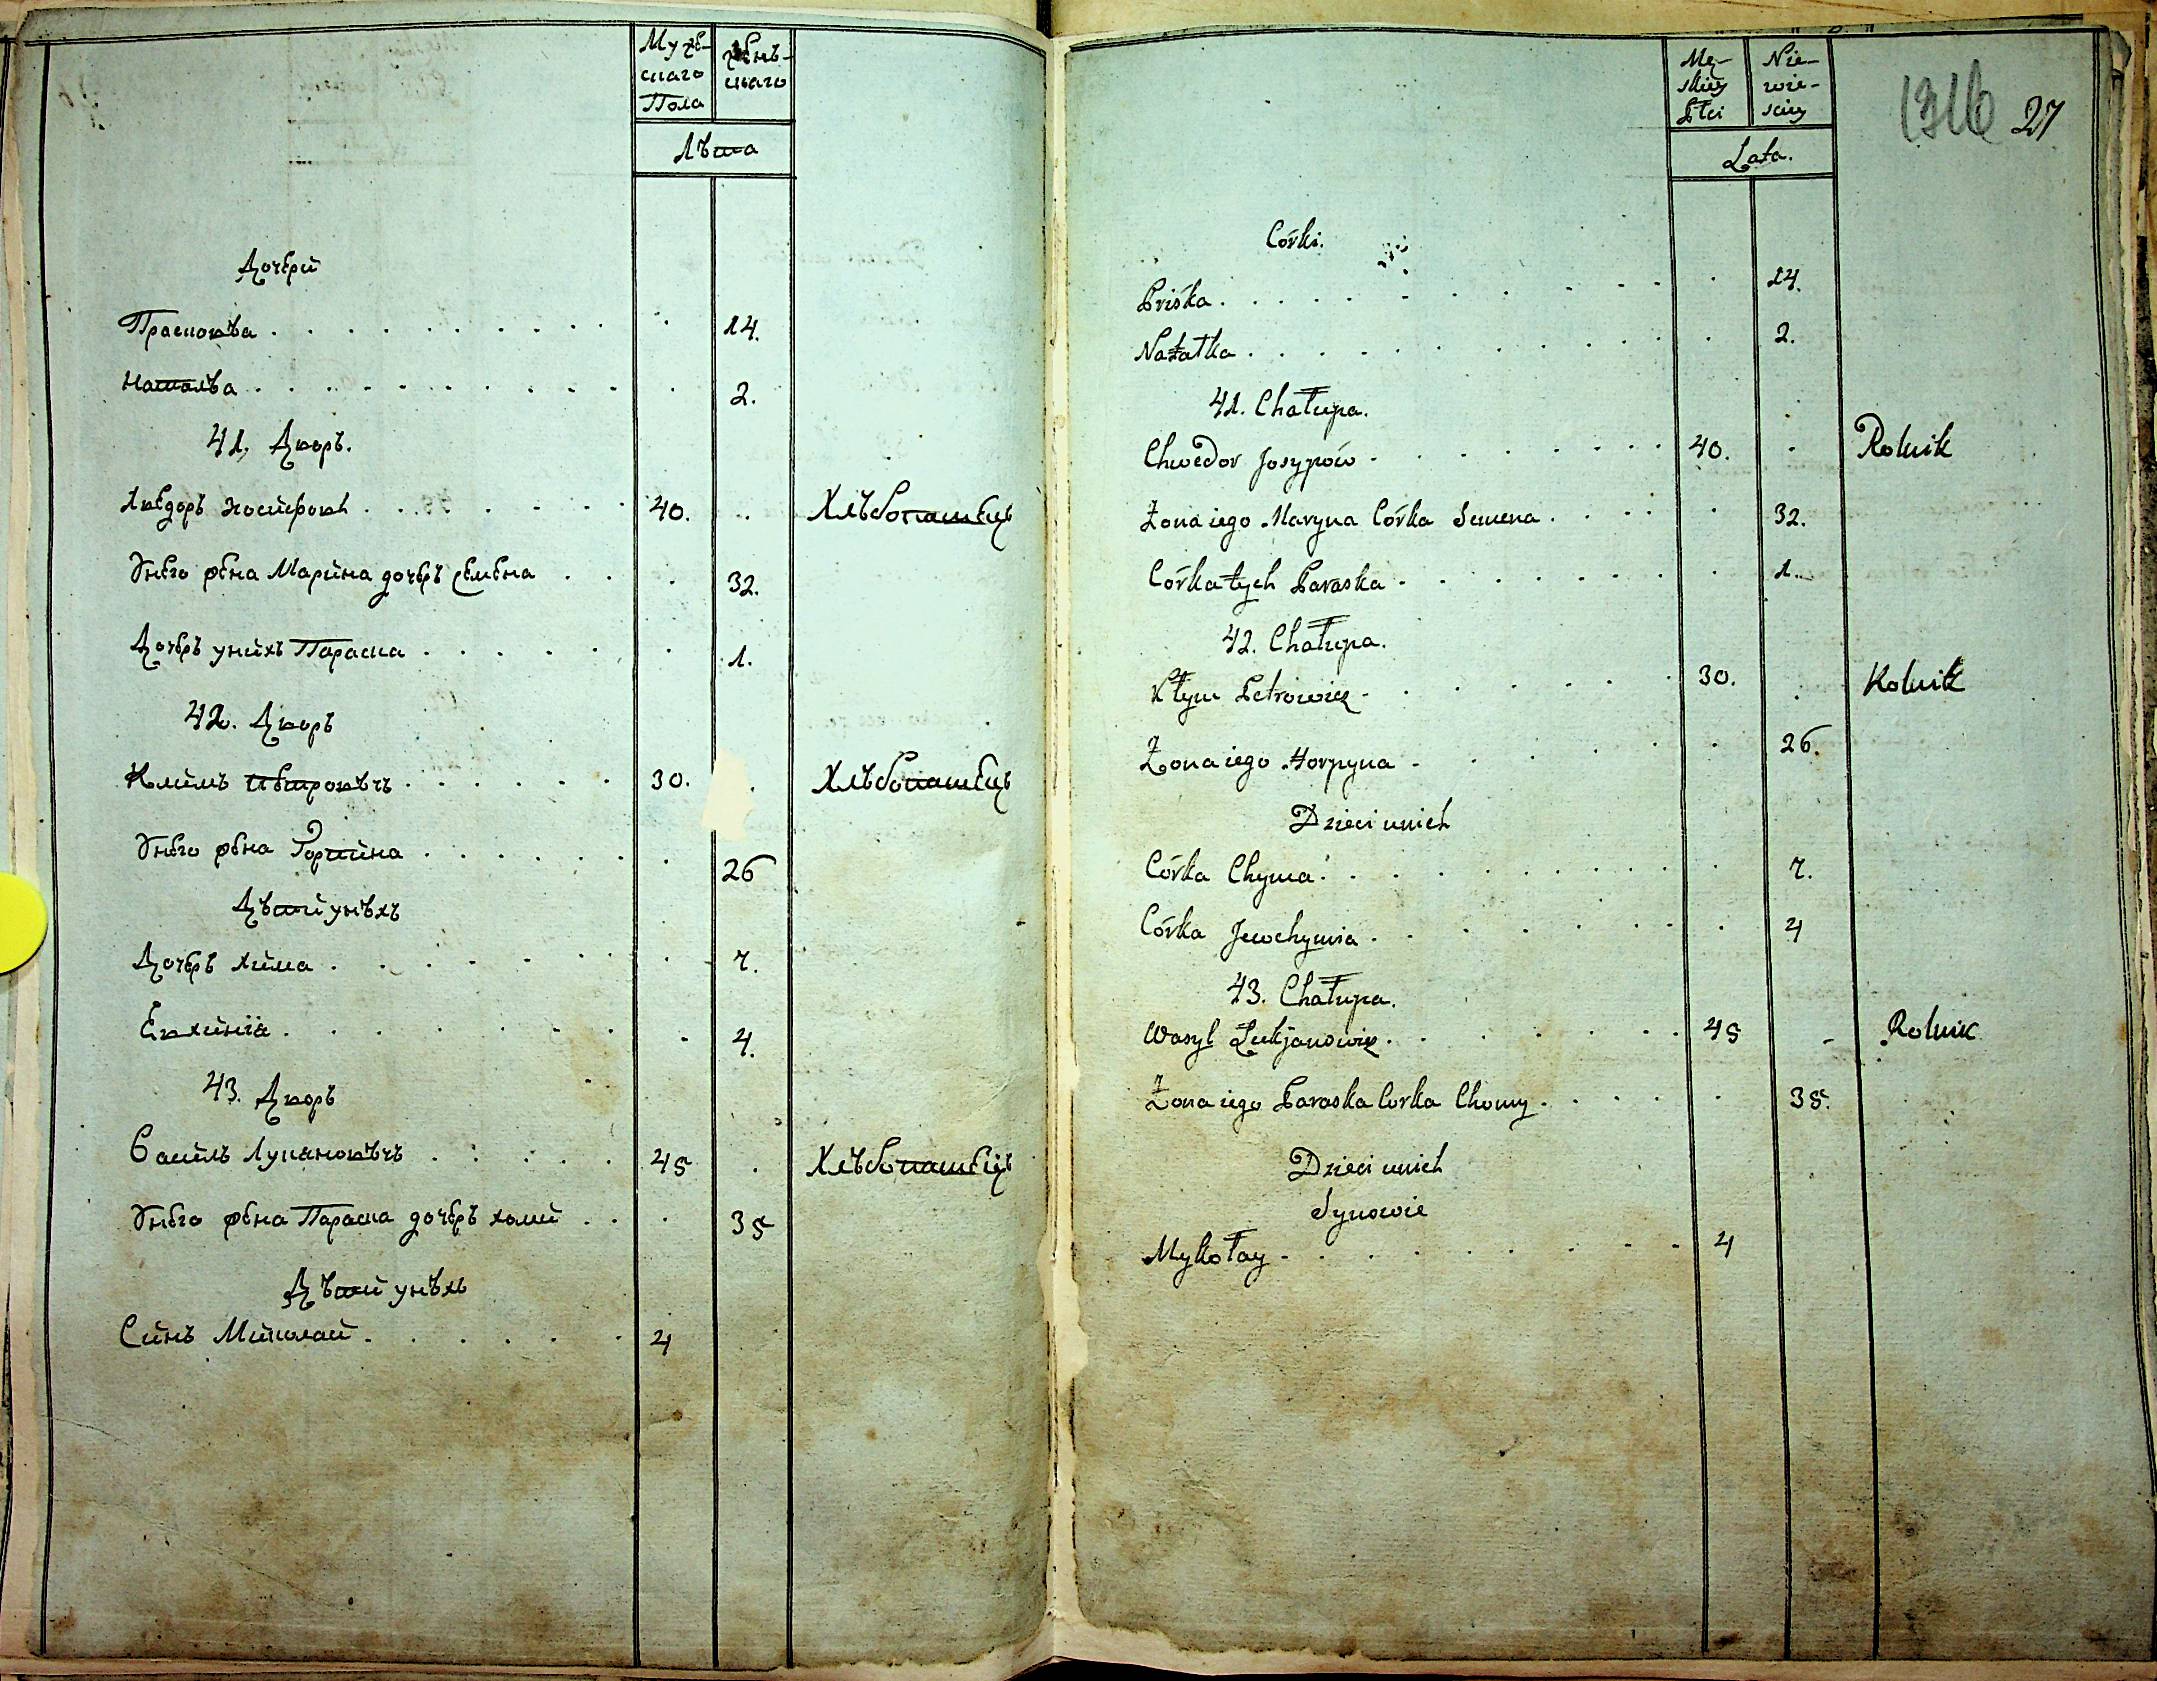 Мужескаго Пола
женскаго
Лѣта
Дочери
Прасковѣа 14.
Наталѣа 2.
41. Дворъ.
Хведоръ Иосифовъ 40. Хлѣбопашецъ
У него жена Марина дочерь Семена 32.
Дочерь у нихъ Параска 1.
42. Дворъ
Климъ Петровѣчъ 30. Хлѣбопашецъ
У него жена Горпина 26
Дѣти у нѣхъ
Дочерь Хима 7.
Евхимія 4.
43. Дворъ
Василь Лукянovѣчъ 45 Хлѣбопашецъ
У него жена Параска дочерь Хоми 35
Дѣти у нѣхъ
Синъ Миколай 4
Męskiey Płci
Niewiesciey
Lata.
1316 27
Córki.
Priśka 14.
Natałka 2.
41. Chałupa.
Chwedor Josypów 40. Rolnik
Żona iego Maryna Córka Semena 32.
Córka tych Paraska 1.
42. Chałupa.
Kłym Petrowicz 30. Rolnik
Żona iego Horpyna 26.
Dzieci u nich
Córka Chyma 7.
Córka Jewchymia 4
43. Chałupa.
Wasyl Łukjanowicz 45 Rolnik
Żona iego Paraska Corka Chomy 35.
Dzieci u nich
Synowie
Mykołay 4